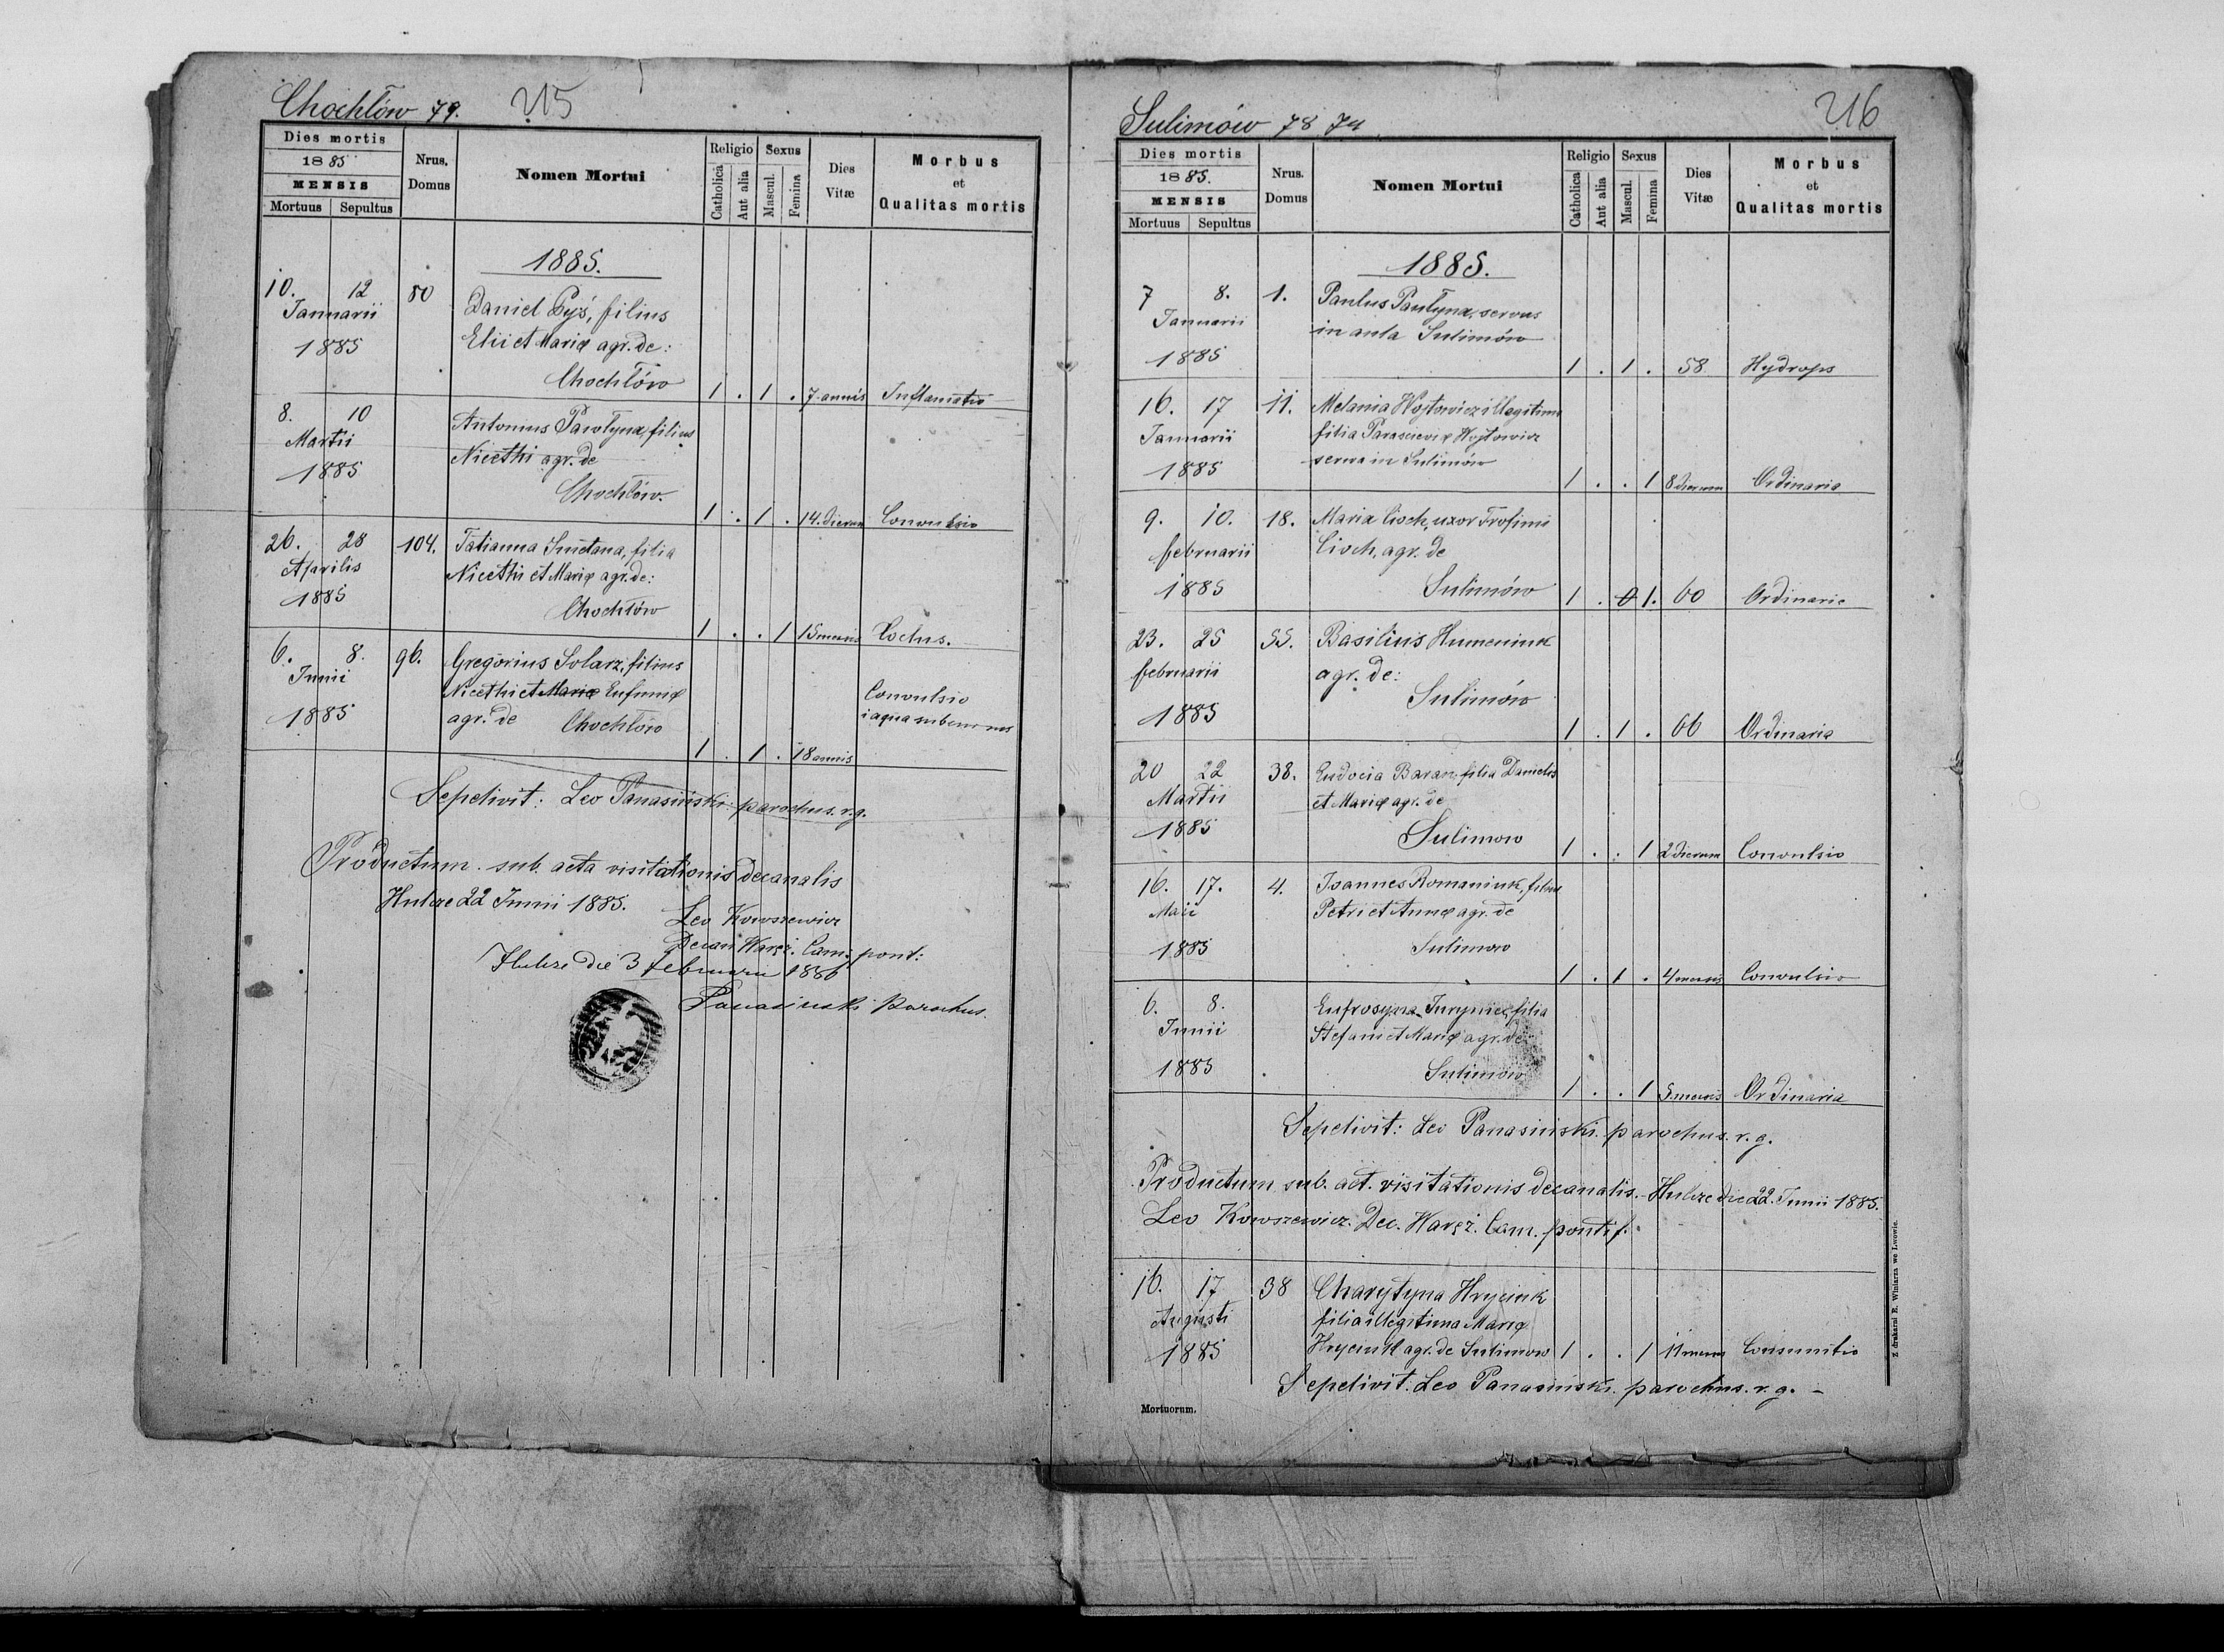 Chochłów 79. 215
Dies mortis
1885
MENSIS
Mortuus Sepultus
Nrus. Domus
Nomen Mortui
Religio
Catholica
Aut alia
Sexus
Mascul.
Femina
Dies Vitæ
Morbus
et
Qualitas mortis
1885.
10. 12 80 Daniel Pyś, filius
Januarii Elii et Mariæ agr. de:
1885 Chochłów 1 . 1 . 7 annis Inflamatio
8. 10 Antonius Pawłyna, filius
Martii Nicethi agr. de
1885 Chochłów. 1 . 1 . 14. dierum Convulsio
26. 28 104. Tatianna Smetana, filia
Aprilis Nicethi et Mariæ agr. de:
1885 Chochłów 1 . . 1 15 mensis
6. 8. 96. Gregorius Solarz, filius
Junii Nicethi et Mariæ Eufimiæ Convulsio
1885 agr. de Chochłów
1 . 1 . 18 annis
Sepelivit: Leo Panasiński parochus. r. g.
Productum sub. acta visitationis decanalis
Hulcze 22 Junii 1885.
Leo Kowszewicz
Decan. Waręż. Cam. pont:
Hulcze die 3 februarii 1886
Panasinski parochus.
Sulimów 78 74 216
Dies mortis
1885.
MENSIS
Mortuus Sepultus
Nrus. Domus
Nomen Mortui
Religio
Catholica
Aut alia
Sexus
Mascul.
Femina
Dies Vitæ
Morbus
et
Qualitas mortis
1885.
7 8. 1. Paulus Pawłyna, servus
Januarii in aula Sulimów
1885 1 . 1 . 58 Hydrops
16. 17 11. Melania Wojtowicz illegitima
Januarii filia Parasceviæ Wojtowicz
1885 serva in Sulimów 1 . . 1 8 dierum Ordinaria
9. 10. 18. Maria Cioch, uxor Trofimi
februarii Cioch, agr. de
1885 Sulimów 1 . 0 1. 60 Ordinaria
23. 25 55. Basilius Humeniuk
februarii agr. de:
1885 Sulimów 1 . 1 . 66 Ordinaria
20 22 38. Eudocia Baran, filia Danielis
Martii et Mariæ agr. de
1885 Sulimow 1 . . 1 2 dierum Convulsio
16. 17. 4. Joannes Romaniuk, filius
Maii Petri et Annæ agr. de
1885 Sulimow
1 . 1 . 4 mensis Convulsio
6. 8. Eufrosyna filia
Junii Stefani et Mariæ agr. de
1885 Sulimów 1 . . 1 5 mensis Ordinaria
Sepelivit: Leo Panasiński. parochus. r. g.
Productum sub. act. visitationis decanalis. Hulcze die 22. Junii 1885.
Leo Kowszewicz. Dec. Waręż. Cam. pontif.
16. 17 38 Charytyna Hryciuk
Augusti filia illegitima Mariæ
1885 Hryciuk agr. de Sulimow 1 . . 1 11 mens Consumtio
Sepelivit: Leo Panasiński. parochus. r. g. –
Mortuorum.
Z drukarni E. Winiarza we Lwowie.